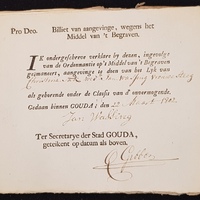 Pro Deo. Billet van aangevinge, wegens het
Middel van 't Begraven.
IK ondergeschreve verklare by dezen, ingevolge
van de Ordonnantie op 't Middel van 't Begraven
geëmaneert, aangevinge te doen van het Lyk van
als gehorende onder de Classis van d' onvermogende.
Gedaan binnen GOUDA; den 22 Maart 1802
Jan
Ter Secretarye der Stad GOUDA,
geteekent op datum als boven.